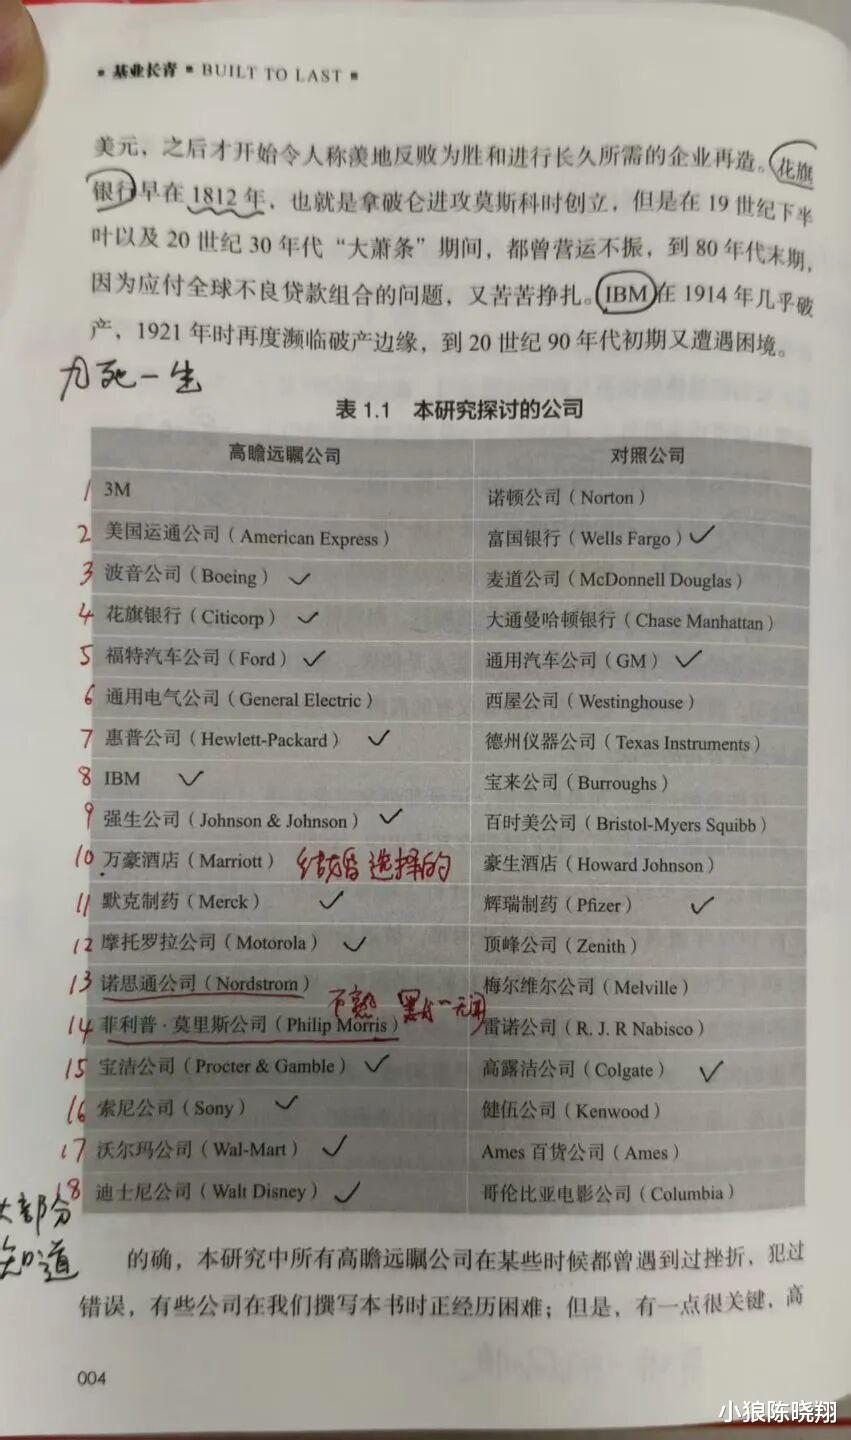 基业长青 BUILT TO LAST
美元，之后才开始令人称羡地反败为胜和进行长久所需的企业再造。花旗
银行早在1812年，也就是拿破仑进攻莫斯科时创立，但是在19世纪下半
叶以及20世纪30年代“大萧条”期间，都曾营运不振，到80年代末期，
因为应付全球不良贷款组合的问题，又苦苦挣扎。IBM在1914年几乎破
产，1921年时再度濒临破产边缘，到20世纪90年代初期又遭遇困境。
九死一生
表1.1 本研究探讨的公司
高瞻远瞩公司 对照公司
1 3M 诺顿公司（Norton）
2 美国运通公司（American Express） 富国银行（Wells Fargo）✓
3 波音公司（Boeing）✓ 麦道公司（McDonnell Douglas）
4 花旗银行（Citicorp）✓ 大通曼哈顿银行（Chase Manhattan）
5 福特汽车公司（Ford）✓ 通用汽车公司（GM）✓
6 通用电气公司（General Electric） 西屋公司（Westinghouse）
7 惠普公司（Hewlett-Packard）✓ 德州仪器公司（Texas Instruments）
8 IBM ✓ 宝来公司（Burroughs）
9 强生公司（Johnson & Johnson）✓ 百时美公司（Bristol-Myers Squibb）
10 万豪酒店（Marriott） 结婚选择的 豪生酒店（Howard Johnson）
11 默克制药（Merck）✓ 辉瑞制药（Pfizer）✓
12 摩托罗拉公司（Motorola）✓ 顶峰公司（Zenith）
13 诺思通公司（Nordstrom） 梅尔维尔公司（Melville）
不熟
14 菲利普·莫里斯公司（Philip Morris） 雷诺公司（R. J. R Nabisco）
15 宝洁公司（Procter & Gamble）✓ 高露洁公司（Colgate）✓
16 索尼公司（Sony）✓ 健伍公司（Kenwood）
17 沃尔玛公司（Wal-Mart）✓ Ames百货公司（Ames）
18 迪士尼公司（Walt Disney）✓ 哥伦比亚电影公司（Columbia）
大部分
知道
的确，本研究中所有高瞻远瞩公司在某些时候都曾遇到过挫折，犯过
错误，有些公司在我们撰写本书时正经历困难；但是，有一点很关键，高
004
小狼陈晓翔